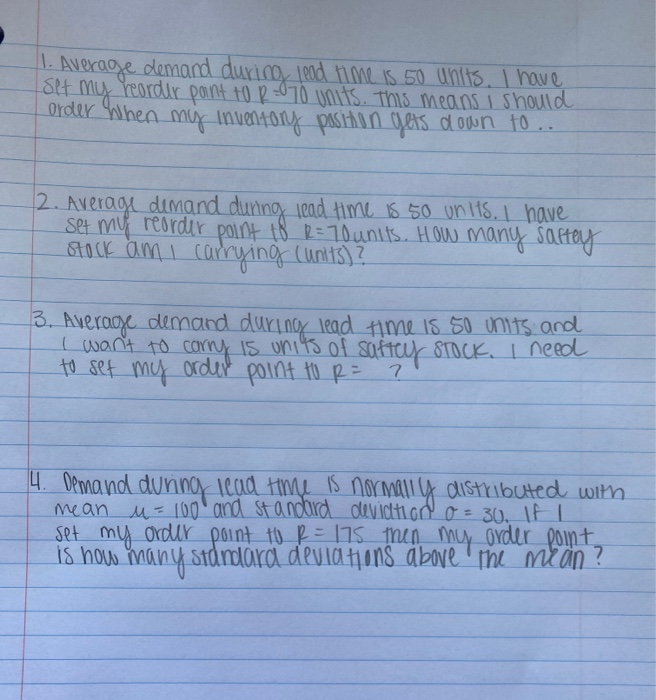 1. Average demand during lead time is 50 units. I have
set my reorder point to R=70 units. This means i should
order when my inventory position gets down to ..
2. Average demand during lead time is 50 units. I have
set my reorder point to R=70 units. How many saftey
stock am i carrying (units)?
3. Average demand during lead time is 50 units and
i want to carry 15 units of saftey stock. I need
to set my order point to R= ?
4. Demand during lead time is normally distributed with
mean μ = 100 and standard deviation σ = 30. If I
set my order point to R = 175 then my order point
is how many standard deviations above the mean?